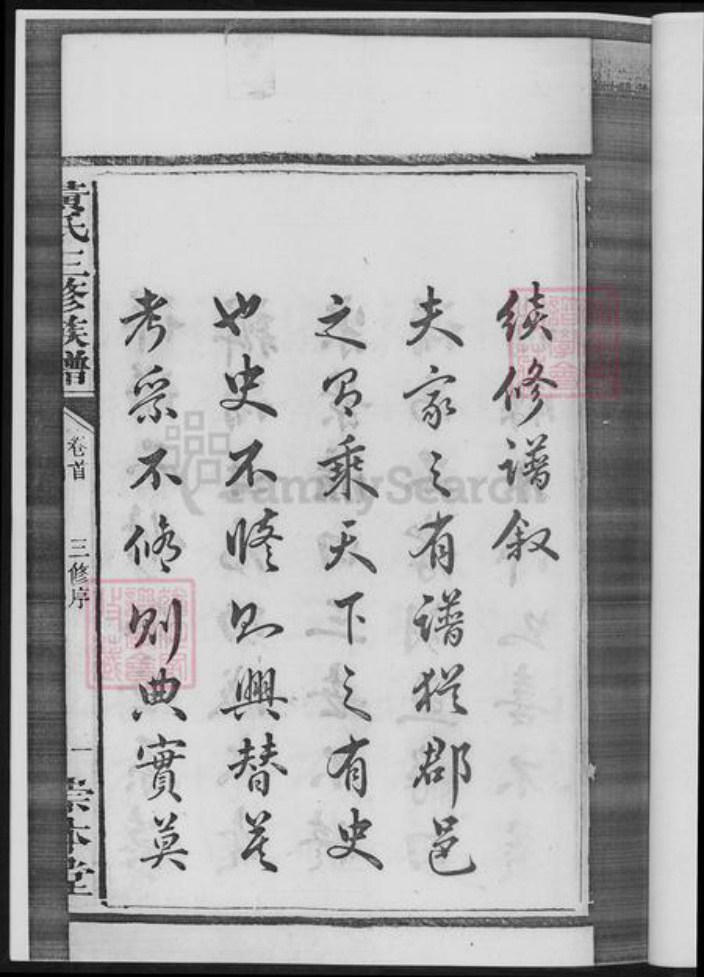 續修譜叙
夫家之有譜猶郡邑
之有乘天下之有史
也史不修則興替莫
考乘不修則典實莫
黃氏三修族譜
卷首
三修序
一
崇本堂
FamilySearch